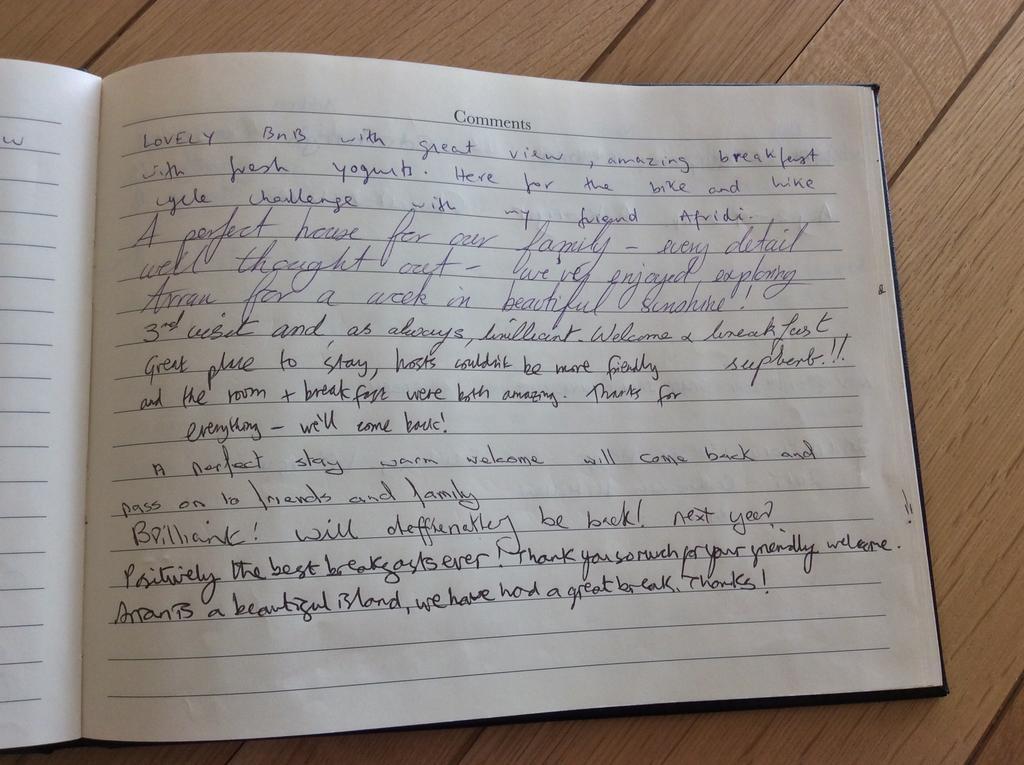 w
Comments
LOVELY BnB with great view, amazing breakfast
with fresh yogurts. Here for the bike and hike
cycle challenge with my friend Afridi.
A perfect house for our family - every detail
well thought out - we've enjoyed exploring
Arran for a week in beautiful sunshine!
3rd visit and, as always, brilliant. Welcome & breakfast
superb!!!
Great place to stay, hosts couldn't be more friendly
and the room + breakfast were both amazing. Thanks for
everything - we'll come back!
A perfect stay warm welcome will come back and
pass on to friends and family
Brilliant! will deffienatley be back! next year?
Positively the best breakfasts ever! Thank you so much for your friendly welcome.
Arran is a beautiful island, we have had a great break. Thanks!